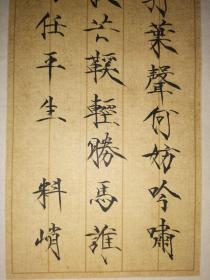 打葉聲何妨吟嘯
芒鞵輕勝馬誰
任平生 料峭